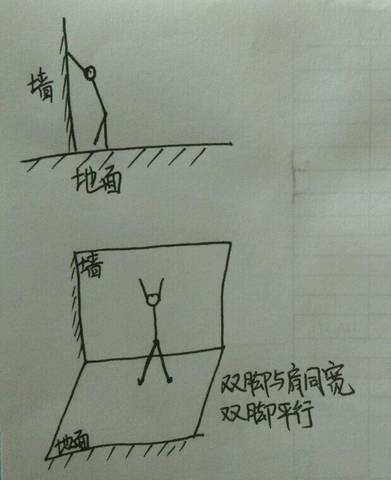 墙
地面
墙
双脚与肩同宽
双脚平行
地面